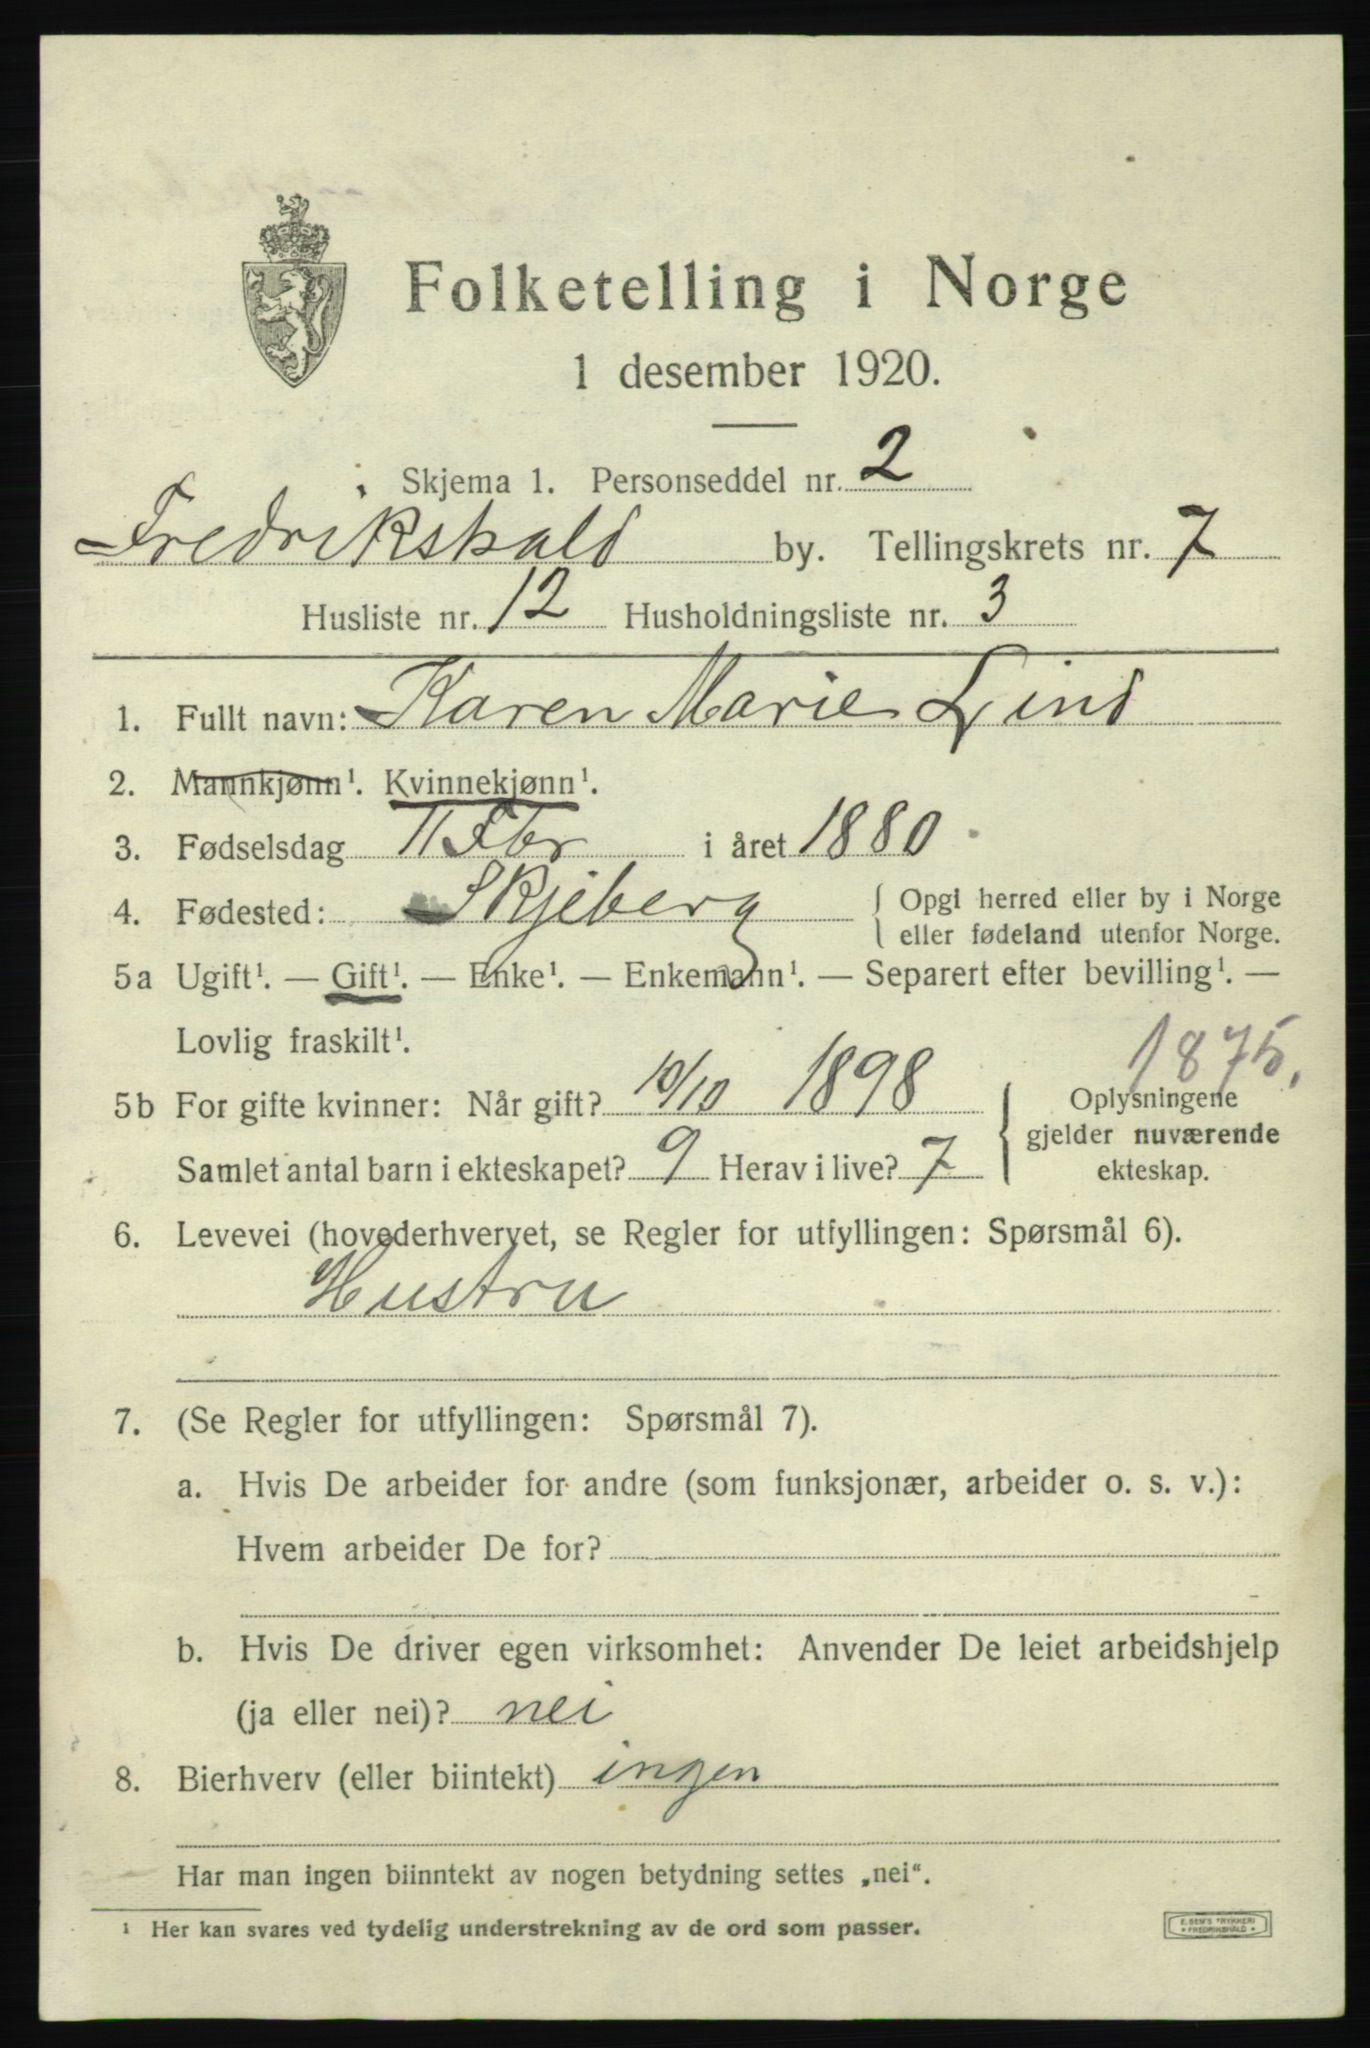 Folketelling i Norge
1 desember 1920.
Skjema 1. Personseddel nr. 2
Fredrikshald by. Tellingskrets nr. 7
Husliste nr. 12 Husholdningsliste nr. 3
1. Fullt navn: Karen Marie Lind
2. Mannkjønn¹. Kvinnekjønn¹.
3. Fødselsdag 11 Fbr i året 1880
4. Fødested: Skjeberg { Opgi herred eller by i Norge
eller fødeland utenfor Norge.
5a Ugift¹. — Gift¹. — Enke¹. — Enkemann¹. — Separert efter bevilling¹. —
Lovlig fraskilt¹.
1875,
5b For gifte kvinner: Når gift? 10/10 1898 { Oplysningene
gjelder nuværende
Samlet antal barn i ekteskapet? 9 Herav i live? 7 ekteskap.
6. Levevei (hovederhvervet, se Regler for utfyllingen: Spørsmål 6).
Hustru
7. (Se Regler for utfyllingen: Spørsmål 7).
a. Hvis De arbeider for andre (som funksjonær, arbeider o. s. v.):
Hvem arbeider De for?
b. Hvis De driver egen virksomhet: Anvender De leiet arbeidshjelp
(ja eller nei)? nei
8. Bierhverv (eller biintekt) ingen
Har man ingen biinntekt av nogen betydning settes „nei“.
¹ Her kan svares ved tydelig understrekning av de ord som passer.
E. SEM'S TRYKKERI
• FREDRIKSHALD •